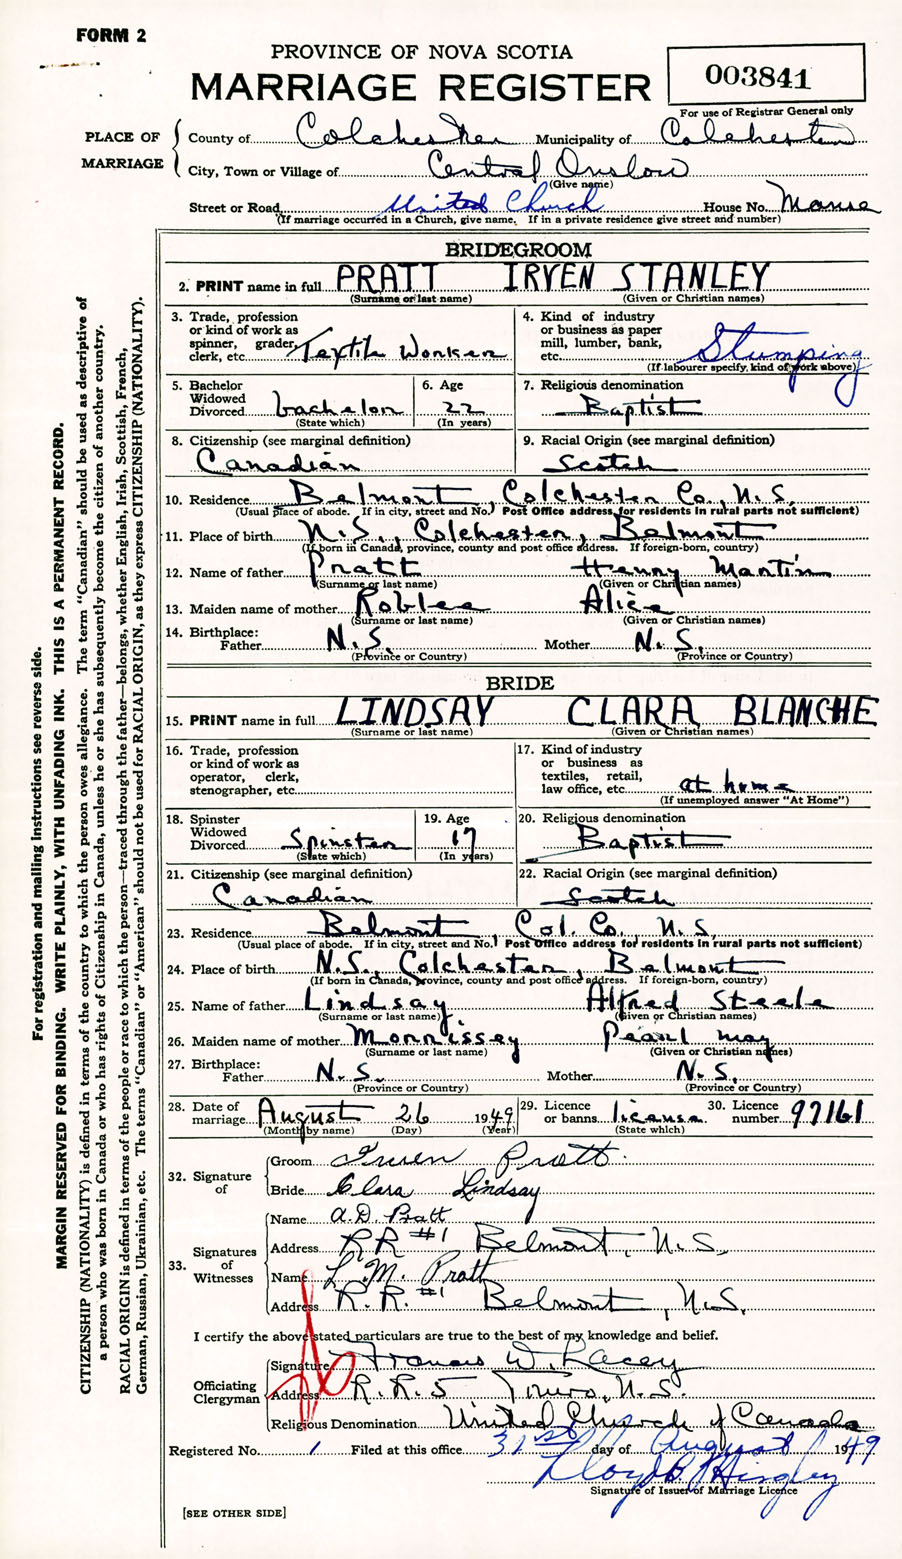 FORM 2
PROVINCE OF NOVA SCOTIA
MARRIAGE REGISTER
003841
For use of Registrar General only
PLACE OF MARRIAGE
County of Colchester Municipality of Colchester
City, Town or Village of Central Onslow
(Give name)
Street or Road United Church House No. Manse
(If marriage occurred in a Church, give name. If in a private residence give street and number)
BRIDEGROOM
2. PRINT name in full PRATT IRVEN STANLEY
(Surname or last name) (Given or Christian names)
3. Trade, profession or kind of work as spinner, grader, clerk, etc. Textile Worker
4. Kind of industry or business as paper mill, lumber, bank, etc. Stumping
(If labourer specify kind of work above)
5. Bachelor Widowed Divorced bachelor
(State which)
6. Age 22
(In years)
7. Religious denomination
Baptist
8. Citizenship (see marginal definition)
Canadian
9. Racial Origin (see marginal definition)
Scotch
10. Residence Belmont, Colchester Co., N.S.
(Usual place of abode. If in city, street and No.) Post Office address for residents in rural parts not sufficient)
11. Place of birth N.S., Colchester, Belmont
(If born in Canada, province, county and post office address. If foreign-born, country)
12. Name of father Pratt Henry Martin
(Surname or last name) (Given or Christian names)
13. Maiden name of mother Roblee Alice
(Surname or last name) (Given or Christian names)
14. Birthplace:
Father N.S. Mother N.S.
(Province or Country) (Province or Country)
BRIDE
15. PRINT name in full LINDSAY CLARA BLANCHE
(Surname or last name) (Given or Christian names)
16. Trade, profession or kind of work as operator, clerk, stenographer, etc.
17. Kind of industry or business as textiles, retail, law office, etc. at home
(If unemployed answer "At Home")
18. Spinster Widowed Divorced Spinster
(State which)
19. Age 17
(In years)
20. Religious denomination
Baptist
21. Citizenship (see marginal definition)
Canadian
22. Racial Origin (see marginal definition)
Scotch
23. Residence Belmont, Col. Co., N.S.
(Usual place of abode. If in city, street and No.) Post Office address for residents in rural parts not sufficient)
24. Place of birth N.S., Colchester, Belmont
(If born in Canada, province, county and post office address. If foreign-born, country)
25. Name of father Lindsay Alfred Steele
(Surname or last name) (Given or Christian names)
26. Maiden name of mother Morrissey Pearl May
(Surname or last name) (Given or Christian names)
27. Birthplace:
Father N.S. Mother N.S.
(Province or Country) (Province or Country)
28. Date of marriage August 26 1949
(Month by name) (Day) (Year)
29. Licence or banns license
(State which)
30. Licence number 97161
32. Signature of
Groom Irven Pratt
Bride Clara Lindsay
33. Signatures of Witnesses
Name A.D. Pratt
Address RR #1 Belmont, N.S.
Name L.M. Pratt
Address R.R. #1 Belmont, N.S.
I certify the above stated particulars are true to the best of my knowledge and belief.
Officiating Clergyman
Signature Francis W. Lacey
Address R.R.5 Truro, N.S.
Religious Denomination United Church of Canada
Registered No. 1 Filed at this office 31st day of August 1949
Lloyd B Hingley
Signature of Issuer of Marriage Licence
[SEE OTHER SIDE]
For registration and mailing instructions see reverse side.
MARGIN RESERVED FOR BINDING. WRITE PLAINLY, WITH UNFADING INK. THIS IS A PERMANENT RECORD.
CITIZENSHIP (NATIONALITY) is defined in terms of the country to which the person owes allegiance. The term "Canadian" should be used as descriptive of
a person who was born in Canada or who has rights of Citizenship in Canada, unless he or she has subsequently become the citizen of another country.
RACIAL ORIGIN is defined in terms of the people or race to which the person—traced through the father—belongs, whether English, Irish, Scottish, French,
German, Russian, Ukrainian, etc. The terms "Canadian" or "American" should not be used for RACIAL ORIGIN, as they express CITIZENSHIP (NATIONALITY).